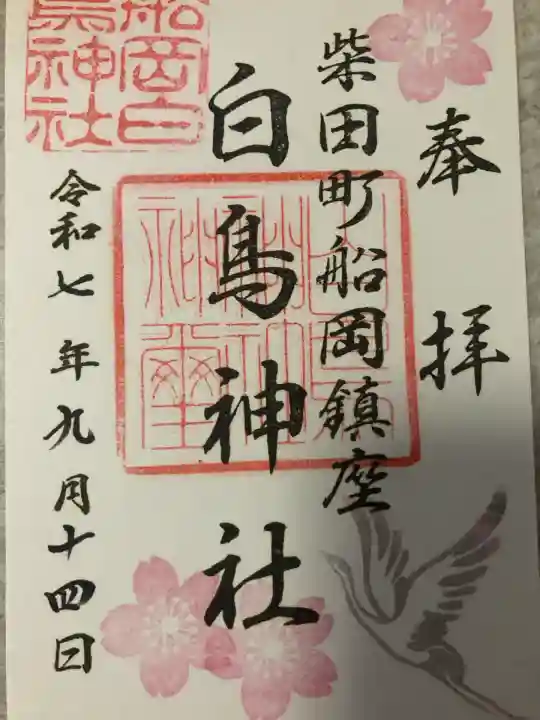 奉拝
柴田町船岡鎮座
白鳥神社
令和七年九月十四日
船岡白
鳥神社